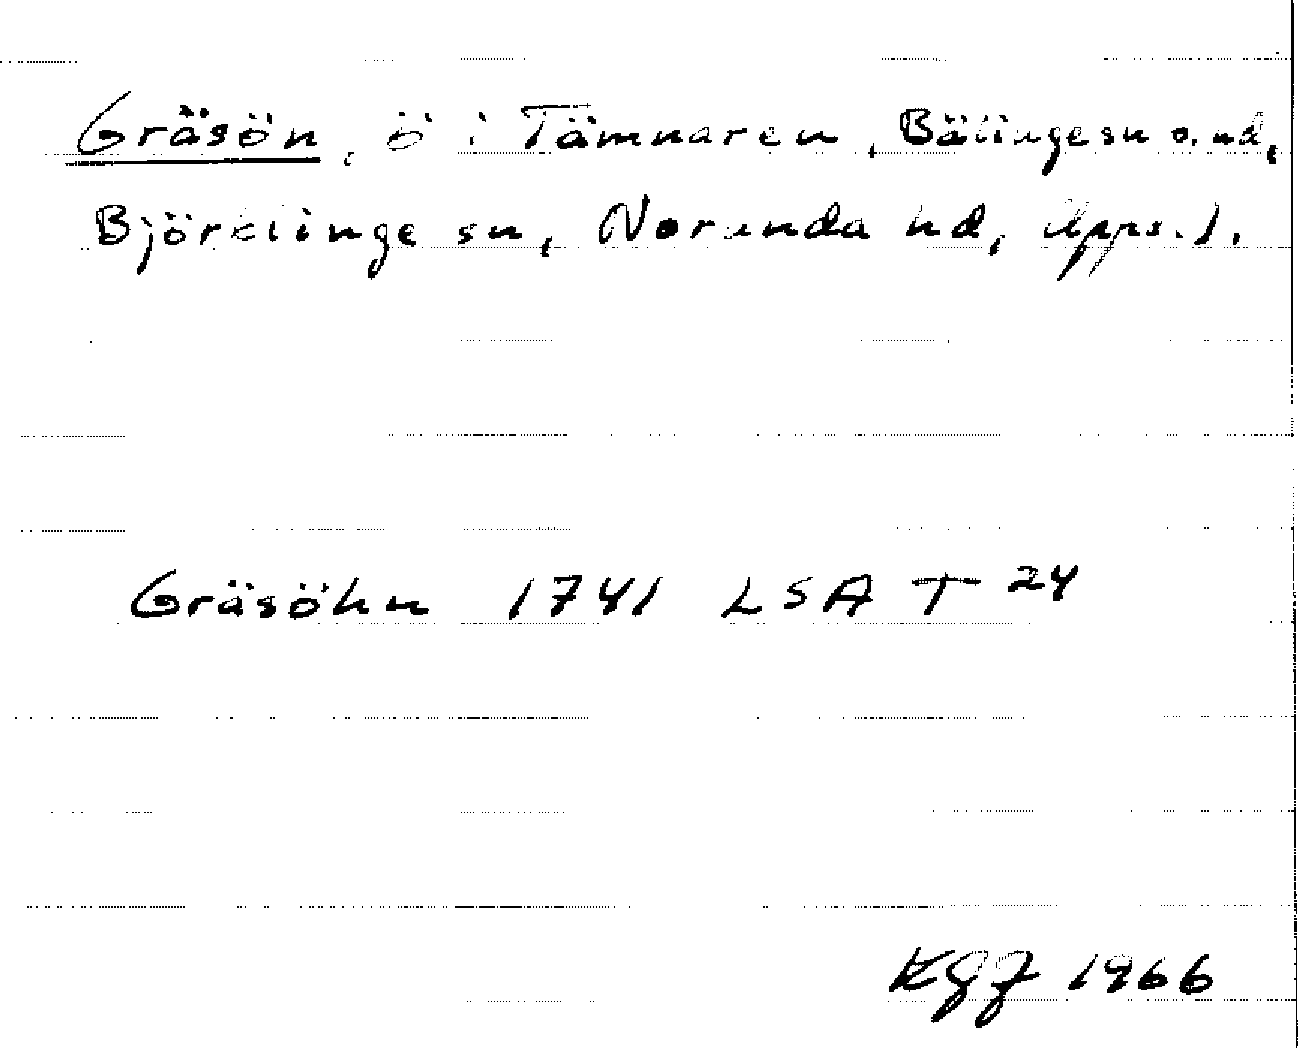 Gräsön, ö i Tämnaren, Bälinge sn o. hd,
Björklinge sn, Norunda hd, Upps. l.
Gräsöhn 1741 LSA T 24
1966